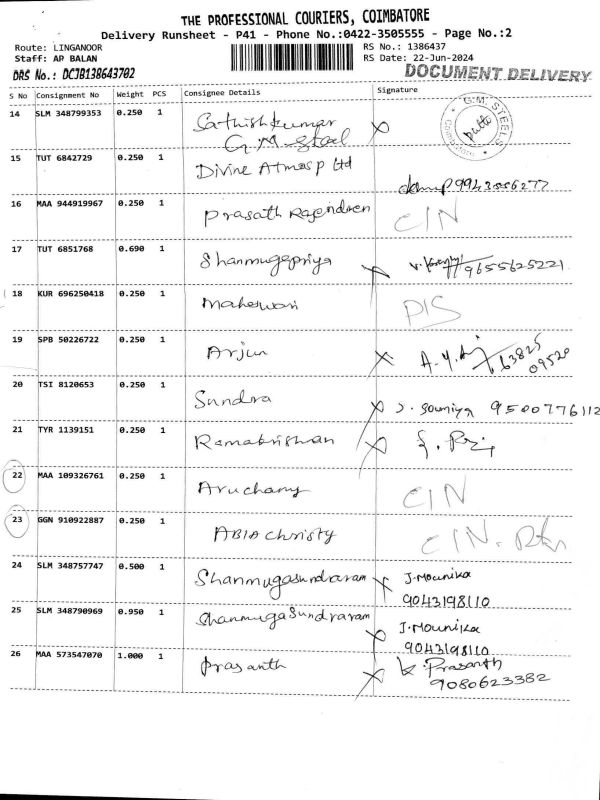 THE PROFESSIONAL COURIERS, COIMBATORE
Delivery Runsheet - P41 - Phone No.:0422-3505555 - Page No.:2
Route: LINGANOOR RS No.: 1386437
Staff: AP BALAN RS Date: 22-Jun-2024
DRS No.: DCJB138643702 DOCUMENT DELIVERY
S No Consignment No Weight PCS Consignee Details Signature
14 SLM 348799353 0.250 1 Sathishkumar
G M Steel
G.M. STEELS
15 TUT 6842729 0.250 1 Divine Atmos p Ltd
16 MAA 944919967 0.250 1 Prasath Rajendren CIN
17 TUT 6851768 0.690 1 Shanmugapriya 9655625221
18 KUR 696250418 0.250 1 Maheswari DIS
19 SPB 50226722 0.250 1 Arjun 63825
09520
20 TSI 8120653 0.250 1 Sundra J. Soumiya 9500776112
21 TYR 1139151 0.250 1 Ramakrishnan
22 MAA 109326761 0.250 1 Aruchamy CIN
23 GGN 910922887 0.250 1 ABIA Christy CIN.
24 SLM 348757747 0.500 1 Shanmugasundraram J.Mounika
9043198110
25 SLM 348790969 0.950 1 ShanmugaSundraram J.Mounika
9043198110
26 MAA 573547070 1.000 1 Prasanth K. Prasanth
9080623382